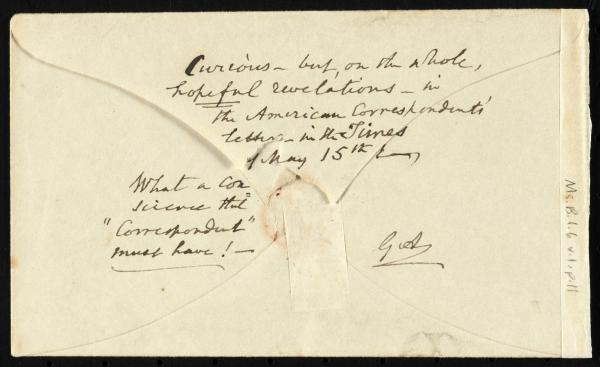 Curious – but, on the whole,
hopeful revelations – in
the American Correspondents'
letters – in the Times
of May 15th –
What a con
science that
"Correspondent"
must have! –
Ms. B.1.6 v.1, p.11